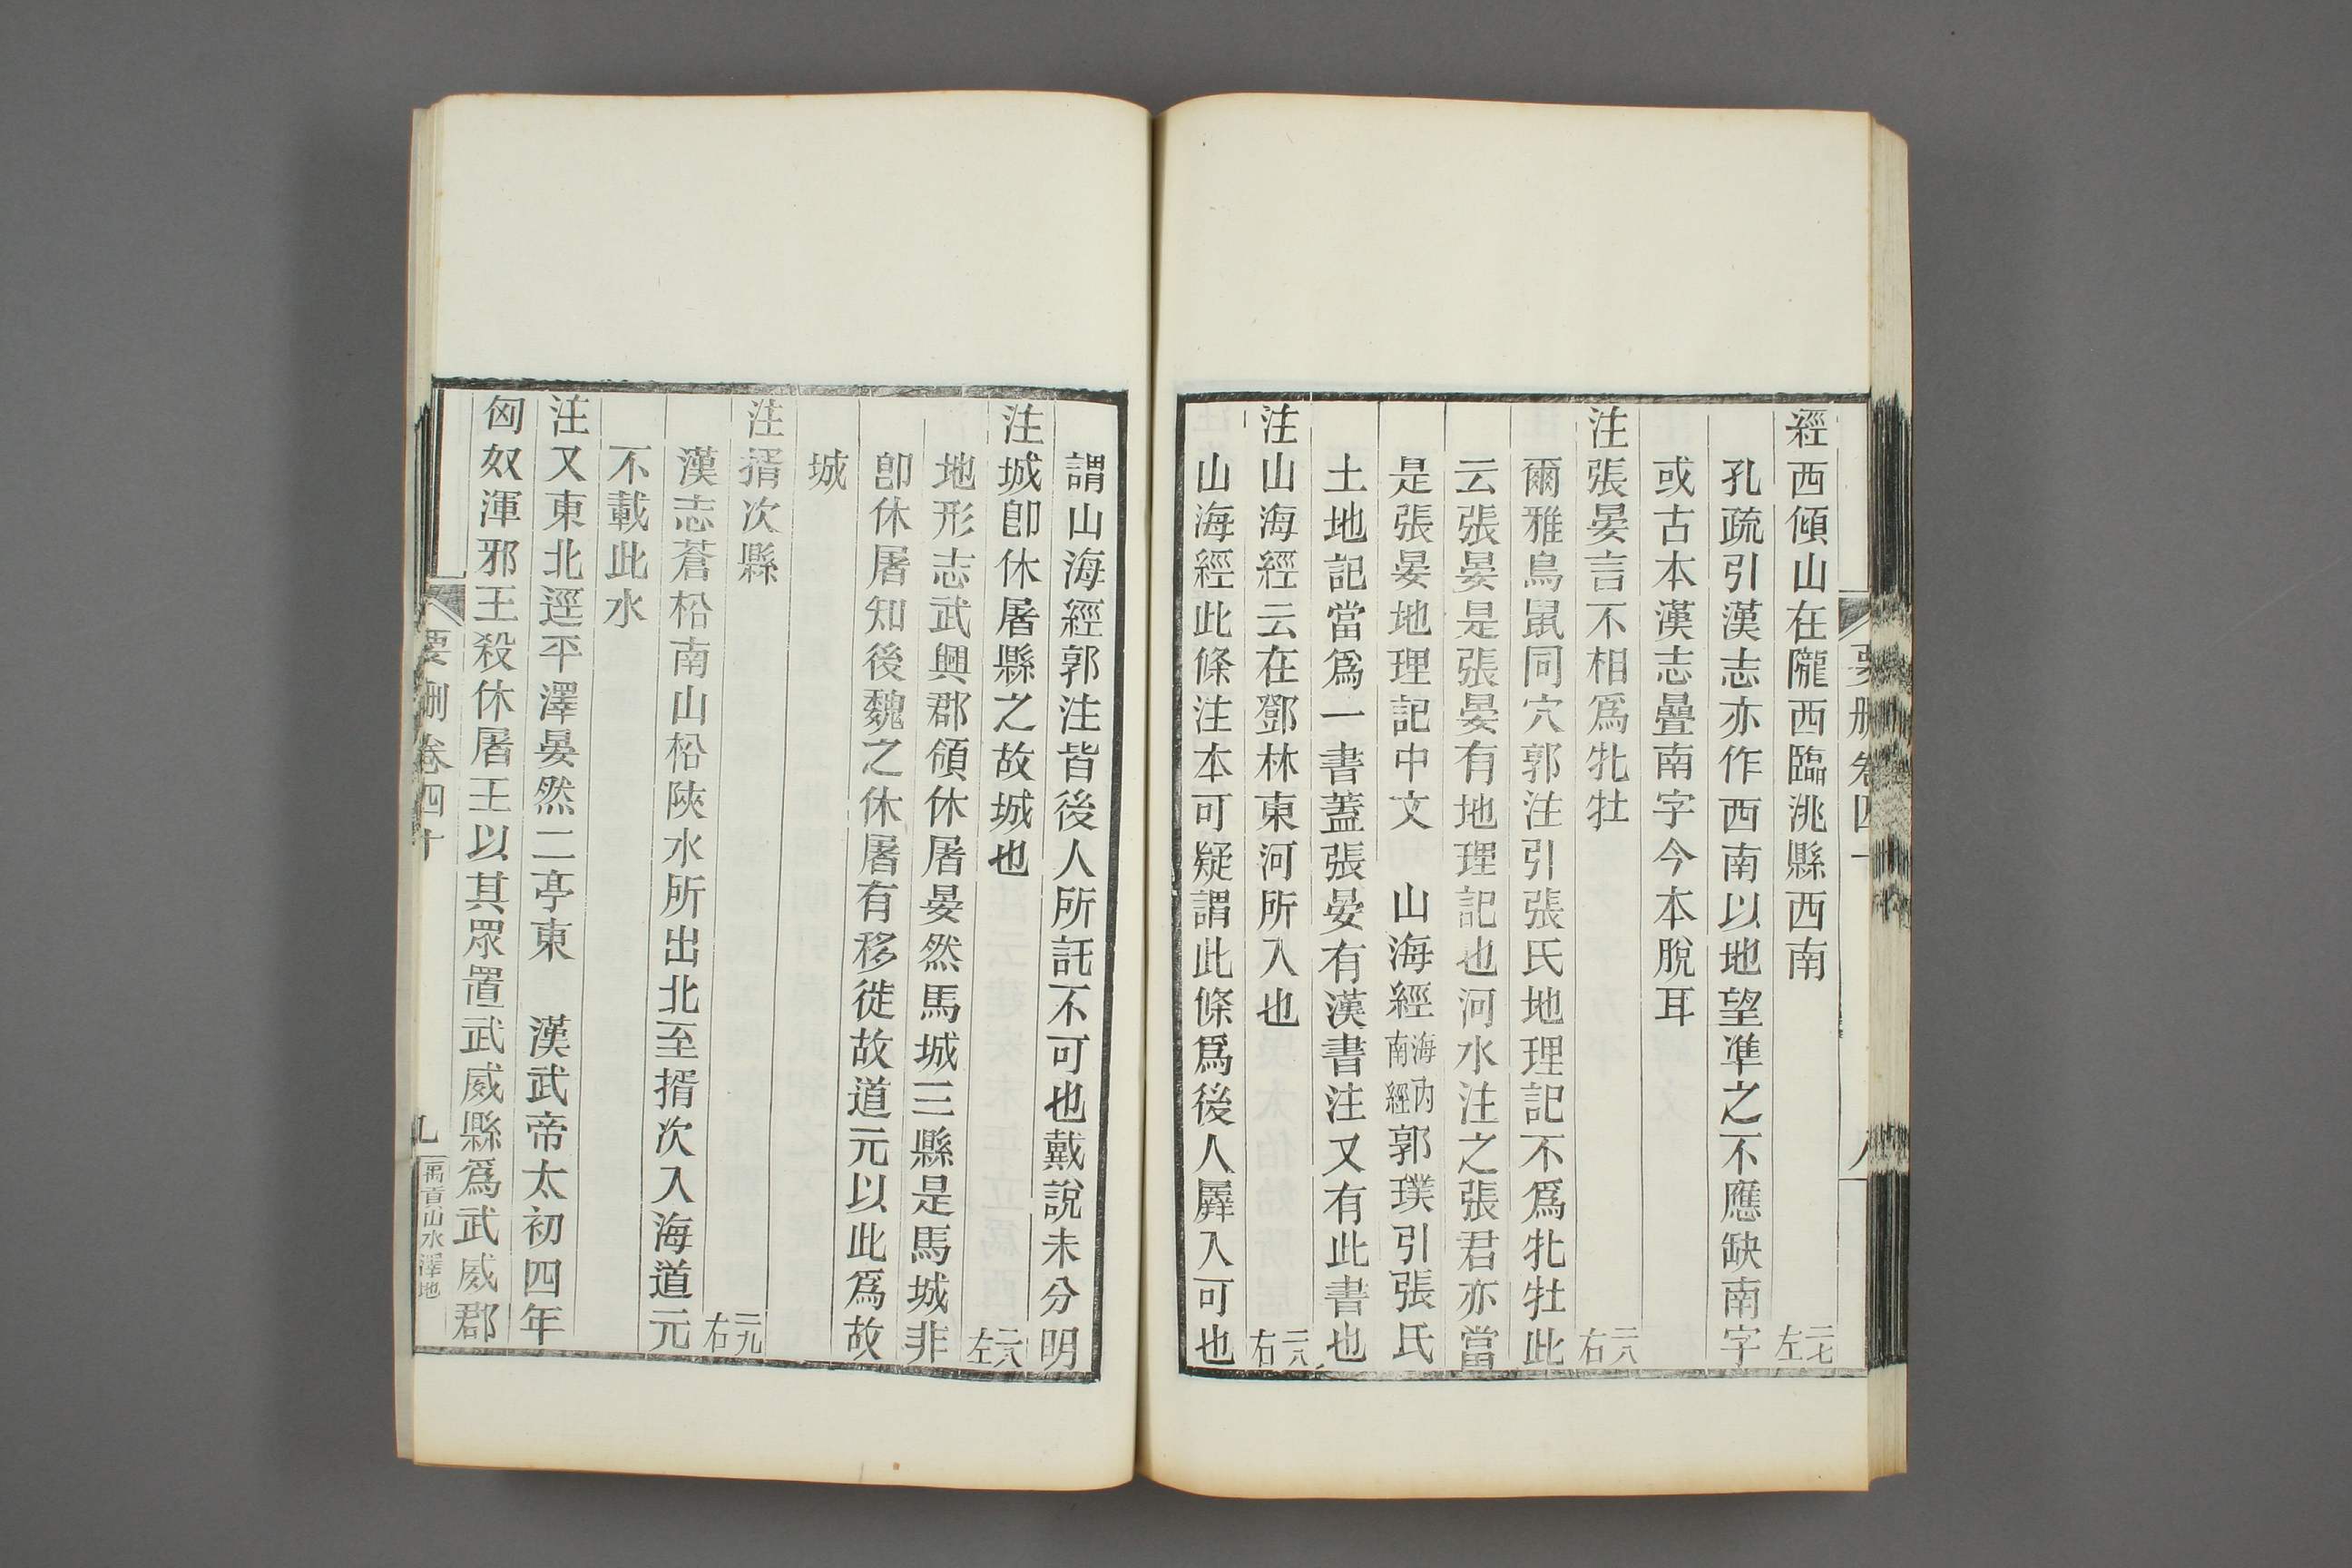 經西傾山在隴西臨洮縣西南 二七左
孔疏引漢志亦作西南以地望準之不應缺南字
或古本漢志疊南字今本脫耳
注張晏言不相爲牝牡 二八右
爾雅鳥鼠同穴郭注引張氏地理記不爲牝牡此
云張晏是張晏有地理記也河水注之張君亦當
是張晏地理記中文 山海經海內南經郭璞引張氏
土地記當爲一書蓋張晏有漢書注又有此書也
注山海經云在鄧林東河所入也 二八右
山海經此條注本可疑謂此條爲後人羼入可也
謂山海經郭注皆後人所託不可也戴說未分明
注城卽休屠縣之故城也 二八左
地形志武興郡領休屠晏然馬城三縣是馬城非
卽休屠知後魏之休屠有移徙故道元以此爲故
城
注揟次縣 二九右
漢志蒼松南山松陝水所出北至揟次入海道元
不載此水
注又東北逕平澤晏然二亭東 漢武帝太初四年
匈奴渾邪王殺休屠王以其眾置武威縣爲武威郡
要刪卷四十
禹貢山水澤地